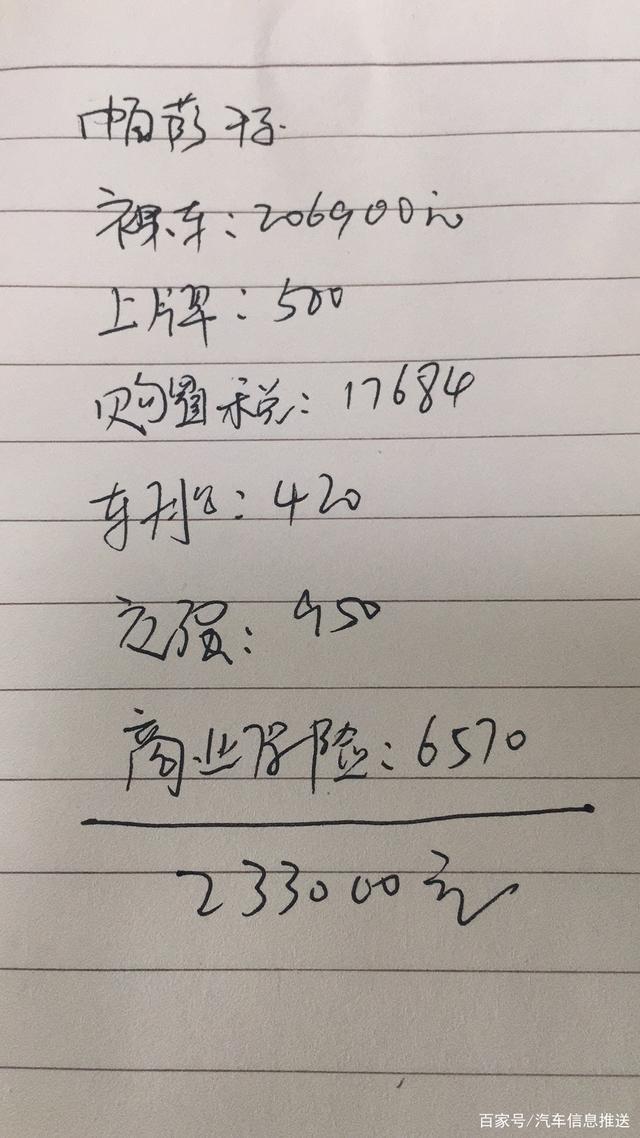 帕萨特
裸车：206900元
上牌：500
购置税：17684
车船：420
交强：950
商业保险：6570
233000元
百家号/汽车信息推送